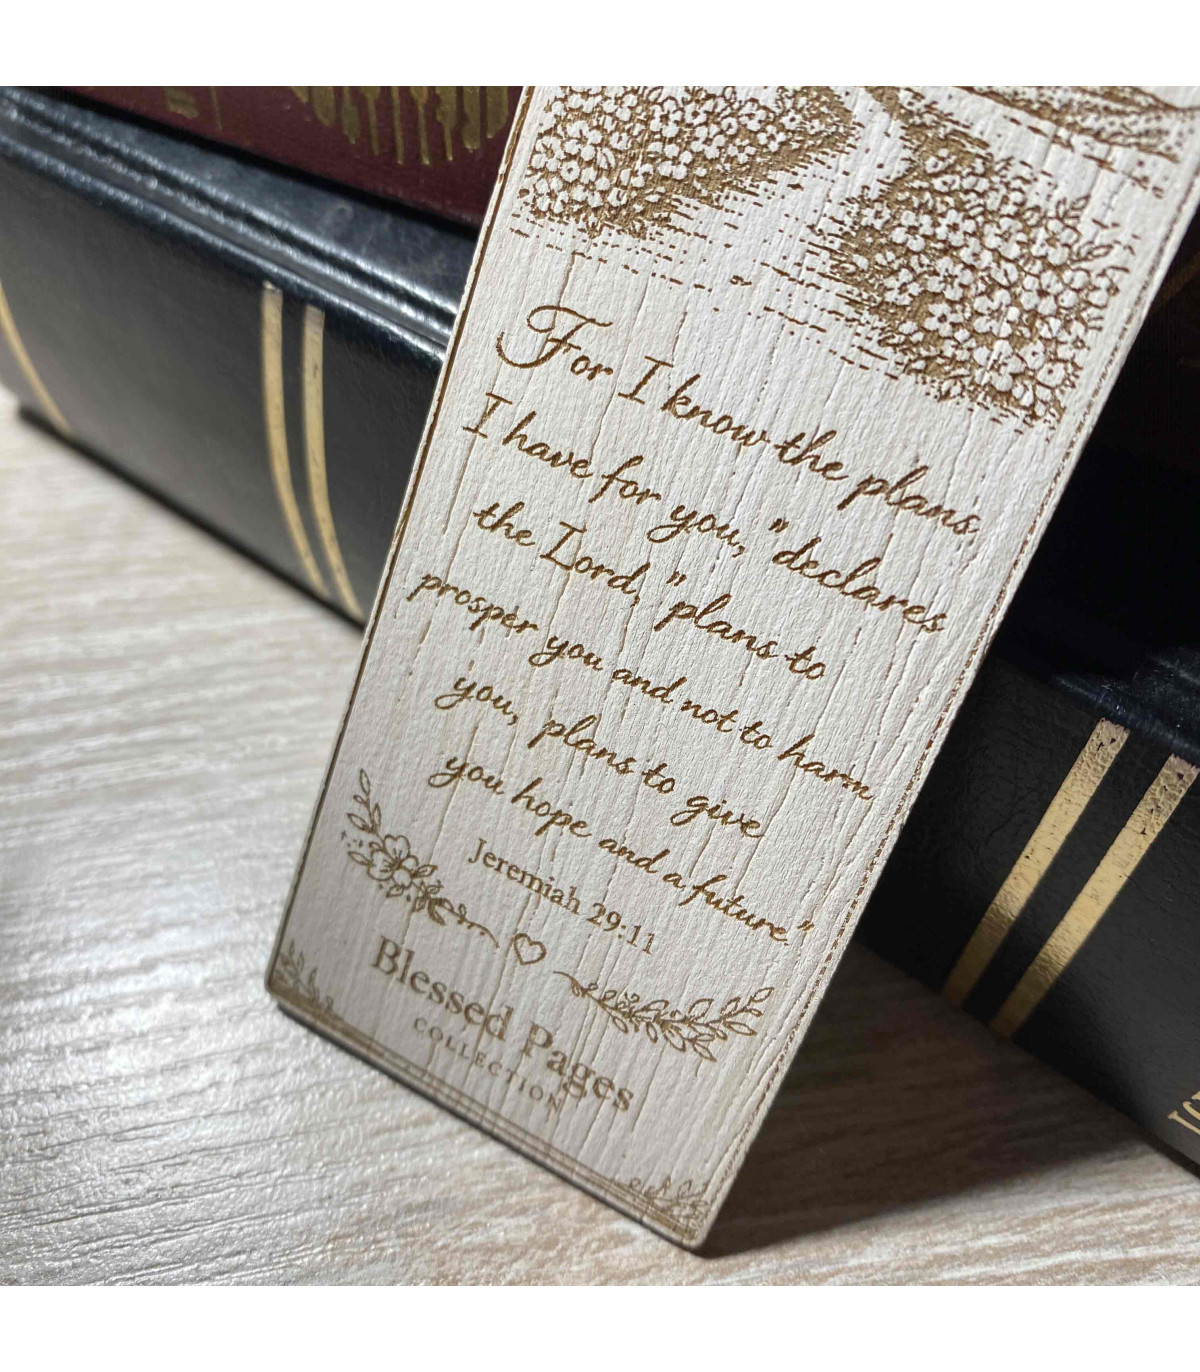 For I know the plans
I have for you," declares
the Lord," plans to
prosper you and not to harm
you, plans to give
you hope and a future."
Jeremiah 29:11
Blessed Pages
COLLECTION